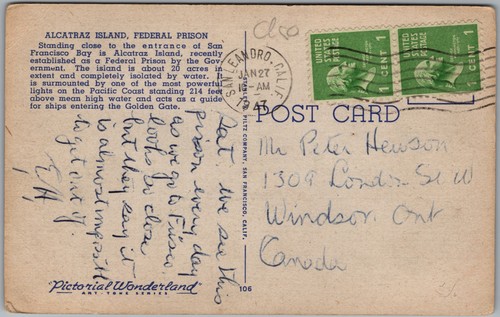 ALCATRAZ ISLAND, FEDERAL PRISON
Standing close to the entrance of San
Francisco Bay is Alcatraz Island, recently
established as a Federal Prison by the Gov-
ernment. The island is about 20 acres in
extent and completely isolated by water. It
is surmounted by one of the most powerful
lights on the Pacific Coast standing 214 feet
above mean high water and acts as a guide
for ships entering the Golden Gate.
SAN LEANDRO, CALIF.
JAN 27
AM
UNITED STATES POSTAGE
1 CENT 1
UNITED STATES POSTAGE
1 CENT 1
POST CARD
Sat. We see this
prison every day
as we go to Frisco.
looks so close
but they say it
is almost impossible
to get out of.
Mr Peter Hewson
1309 London St W
Windsor, Ont
Canada
PILTZ COMPANY, SAN FRANCISCO, CALIF.
"Pictorial Wonderland"
ART-TONE SERIES
106